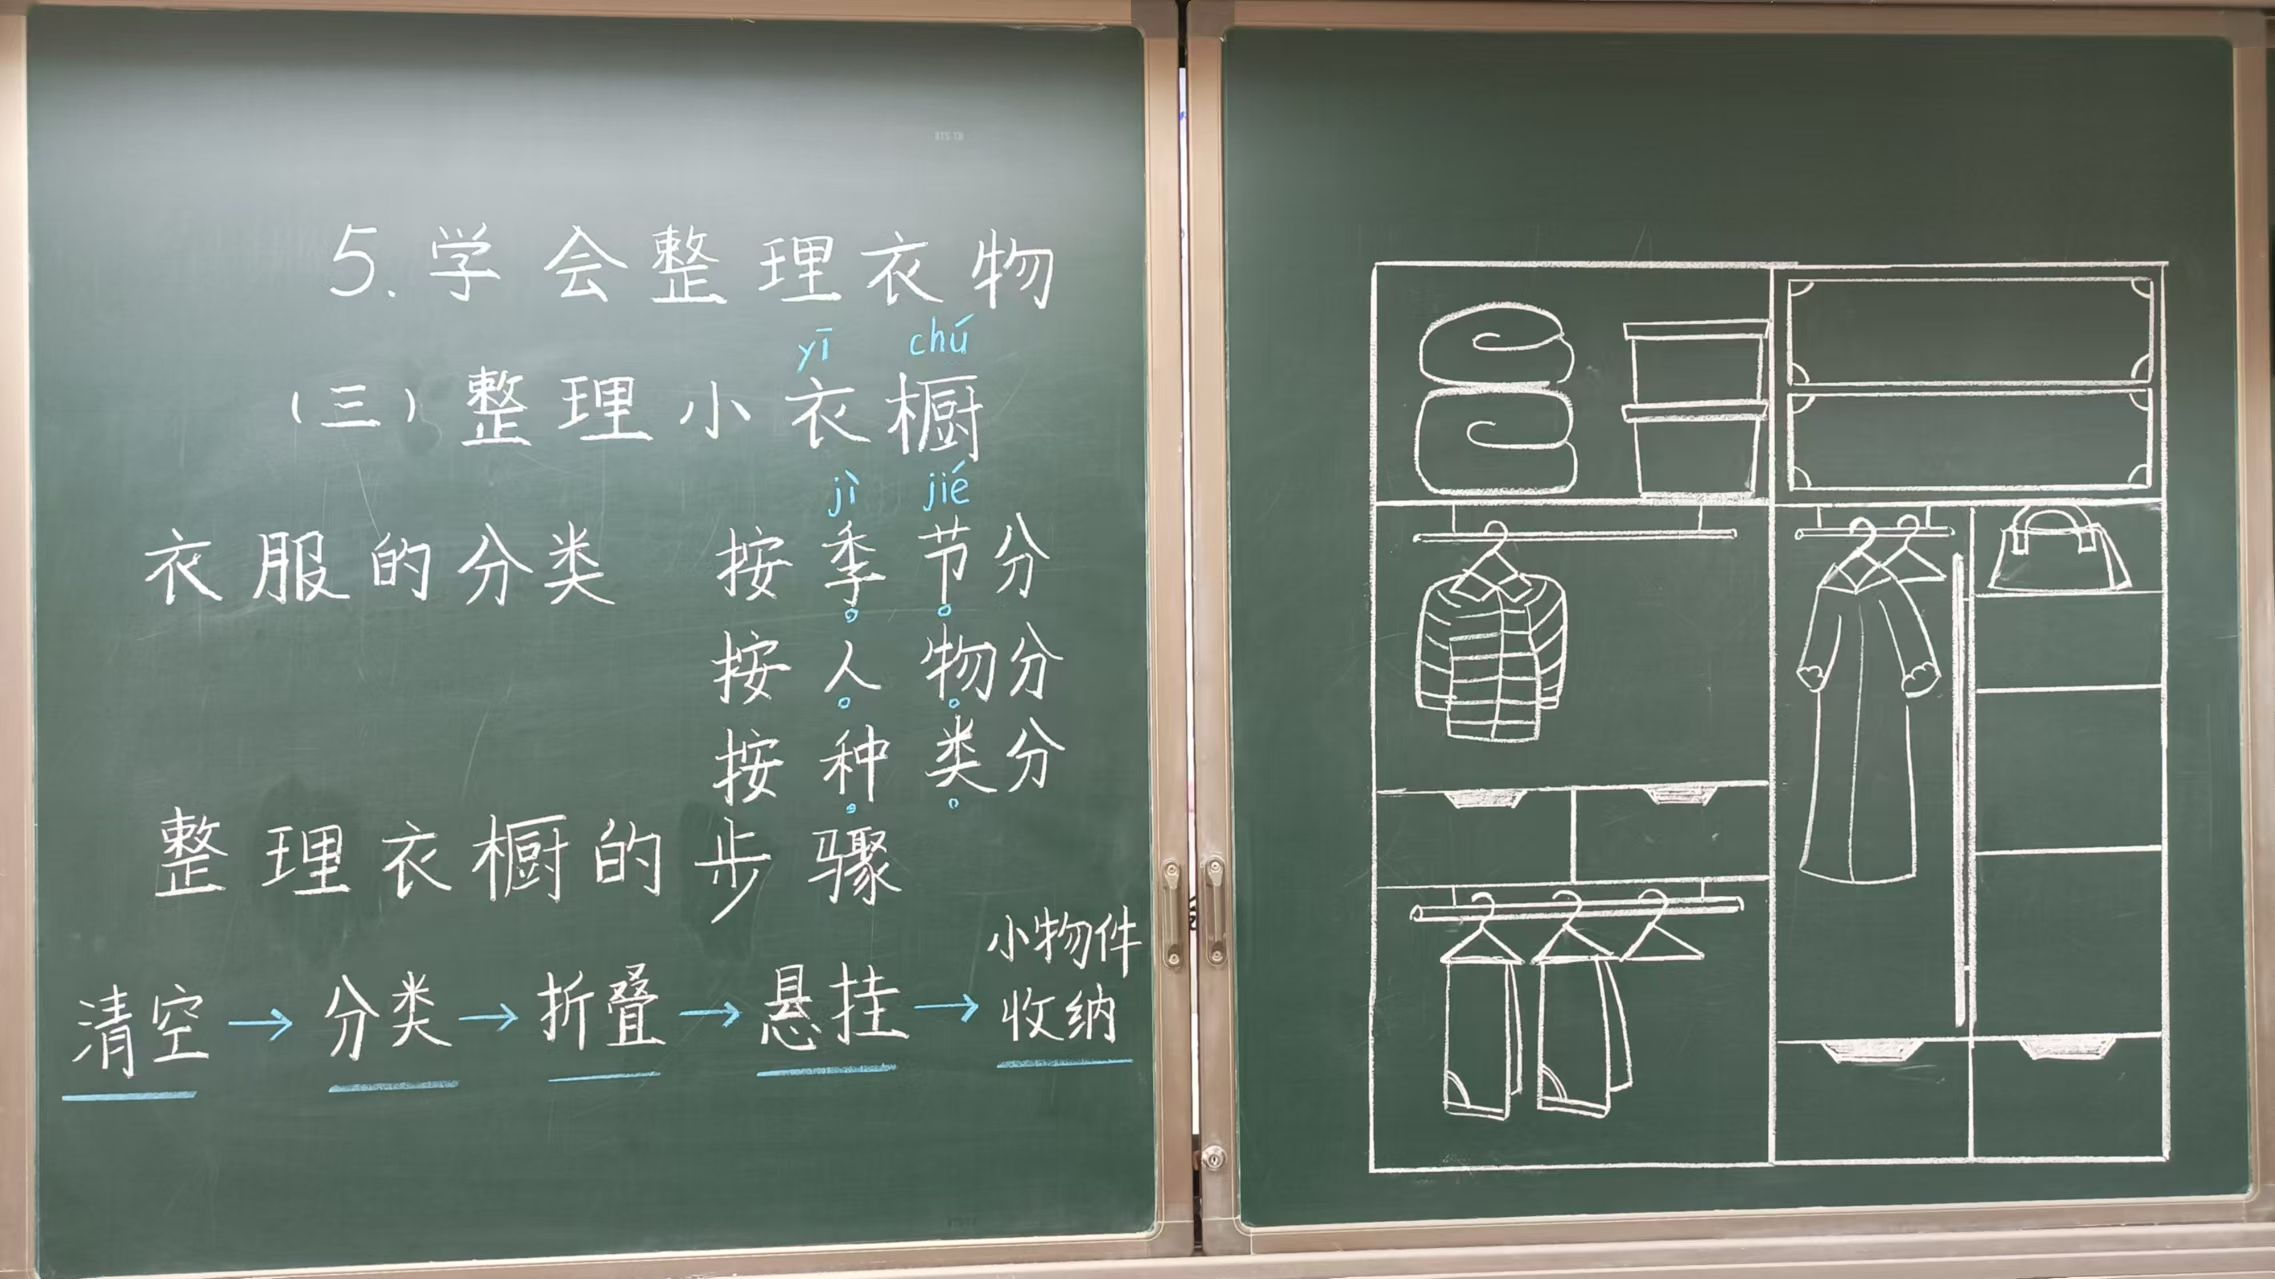 5.学会整理衣物
yī chú
（三）整理小衣橱
jì jié
衣服的分类 按季节分
按人物分
按种类分
整理衣橱的步骤
清空→分类→折叠→悬挂→小物件
收纳